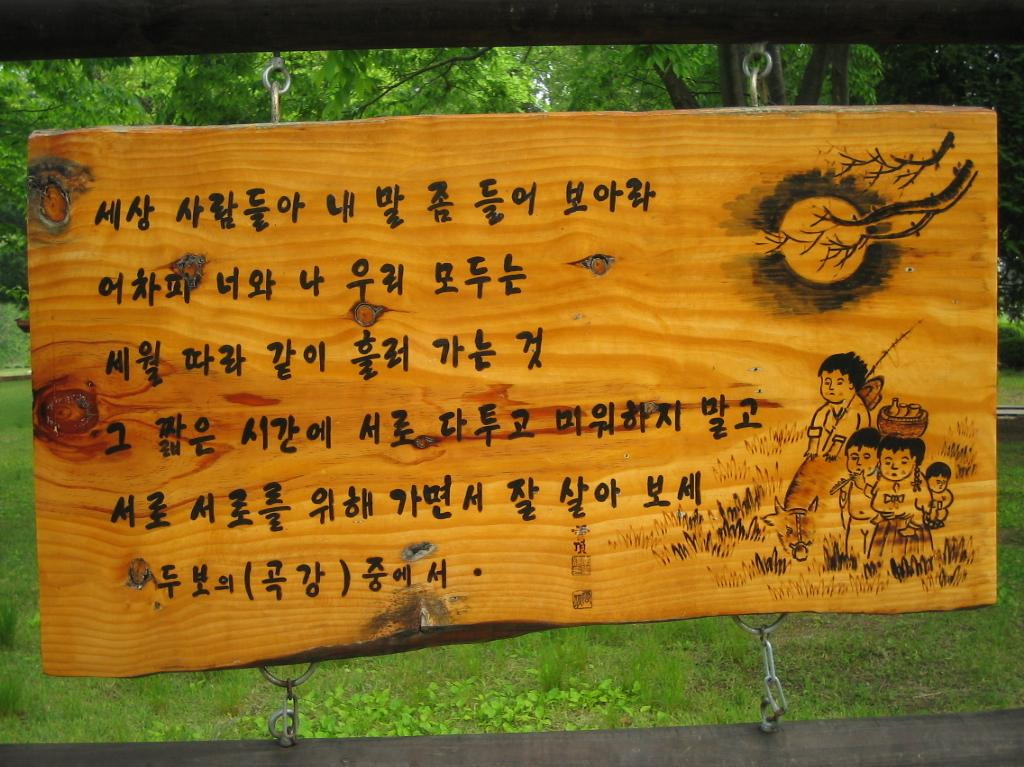 세상 사람들아 내 말 좀 들어 보아라
어차피 너와 나 우리 모두는
세월 따라 같이 흘러 가는 것
그 짧은 시간에 서로 다투고 미워하지 말고
서로 서로를 위해 가면서 잘 살아 보세
두보의 (곡강) 중에서 .